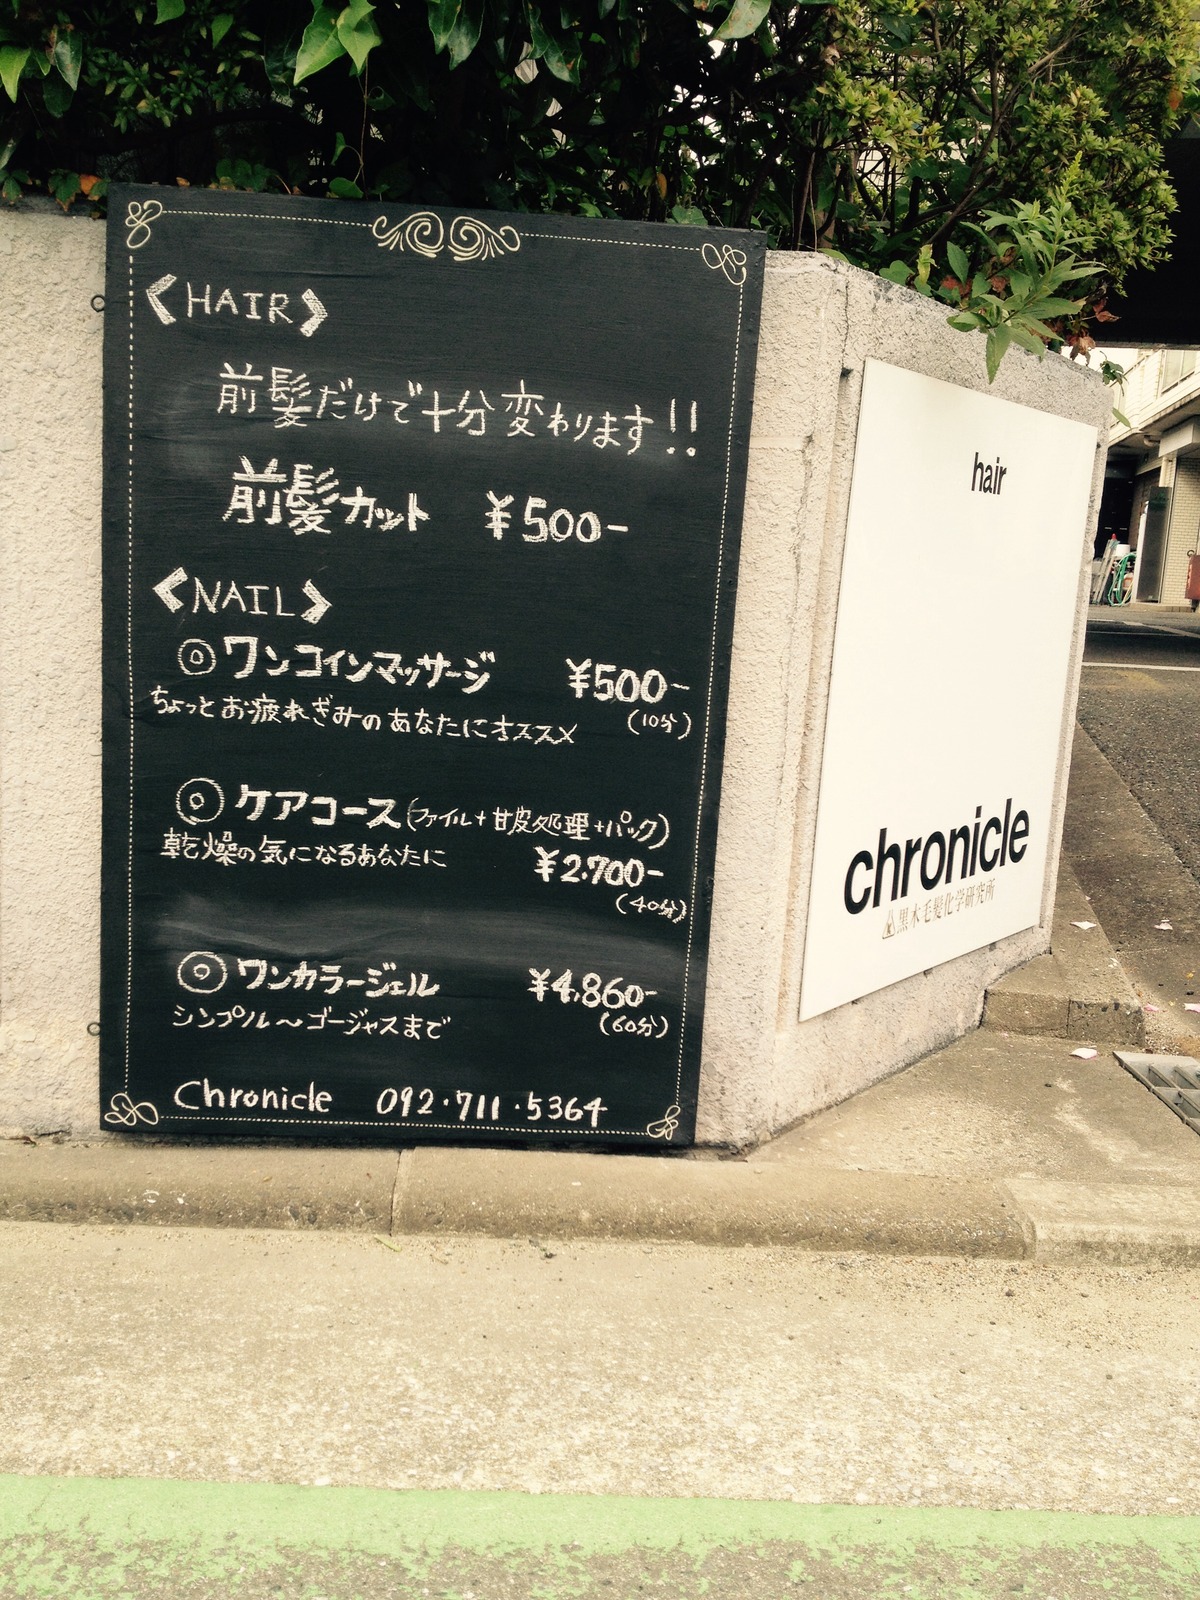 《HAIR》
前髪だけで十分変わります!!
前髪カット ¥500-
《NAIL》
◎ワンコインマッサージ ¥500-
ちょっとお疲れぎみのあなたにオススメ (10分)
◎ケアコース(ファイル+甘皮処理+パック)
乾燥の気になるあなたに ¥2.700-
(40分)
◎ワンカラージェル ¥4.860-
シンプル〜ゴージャスまで (60分)
Chronicle 092・711・5364
hair
chronicle
黒木毛髪化学研究所